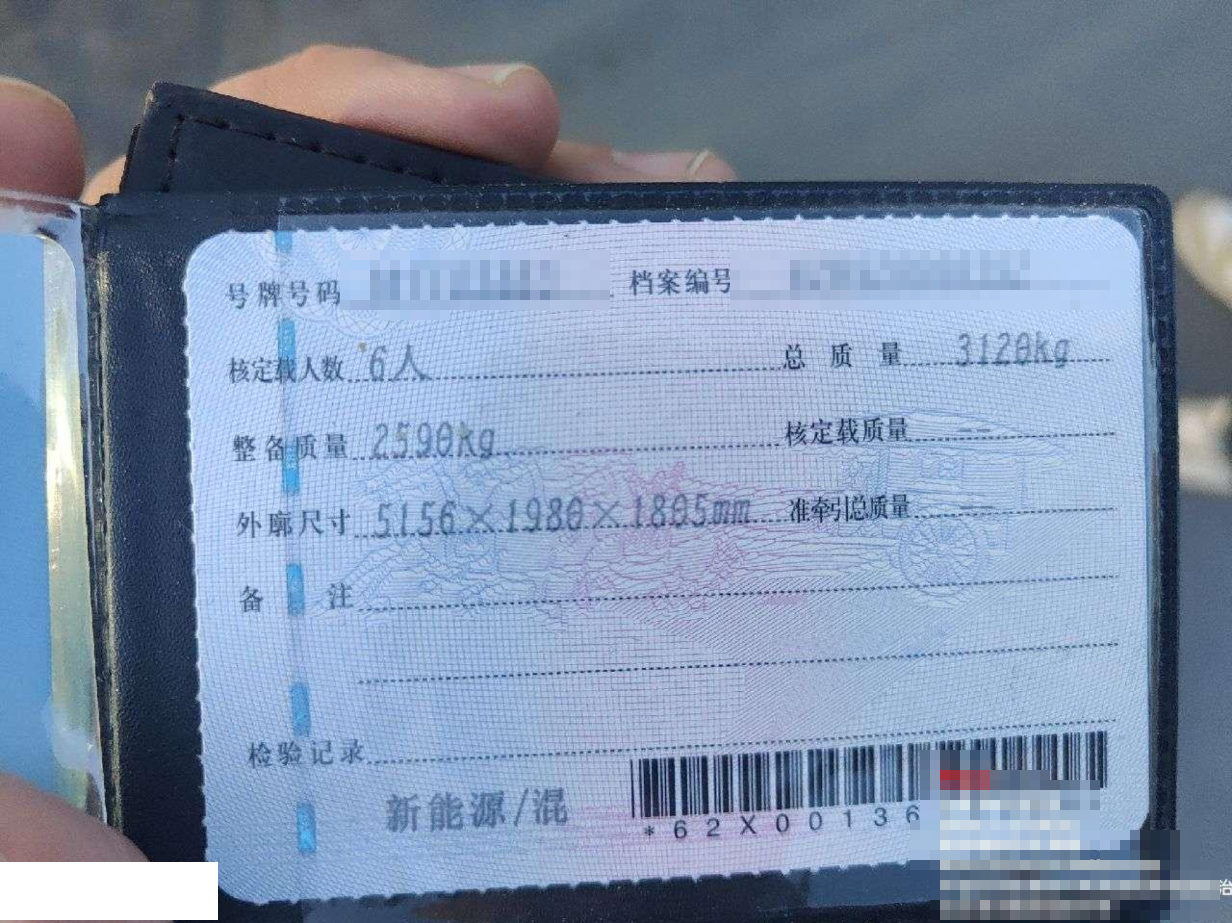 号牌号码 档案编号
核定载人数 6人 总质量 3120kg
整备质量 2590kg 核定载质量 --
外廓尺寸 5156×1980×1805mm 准牵引总质量 --
备注
检验记录
新能源/混
*62X00136
治